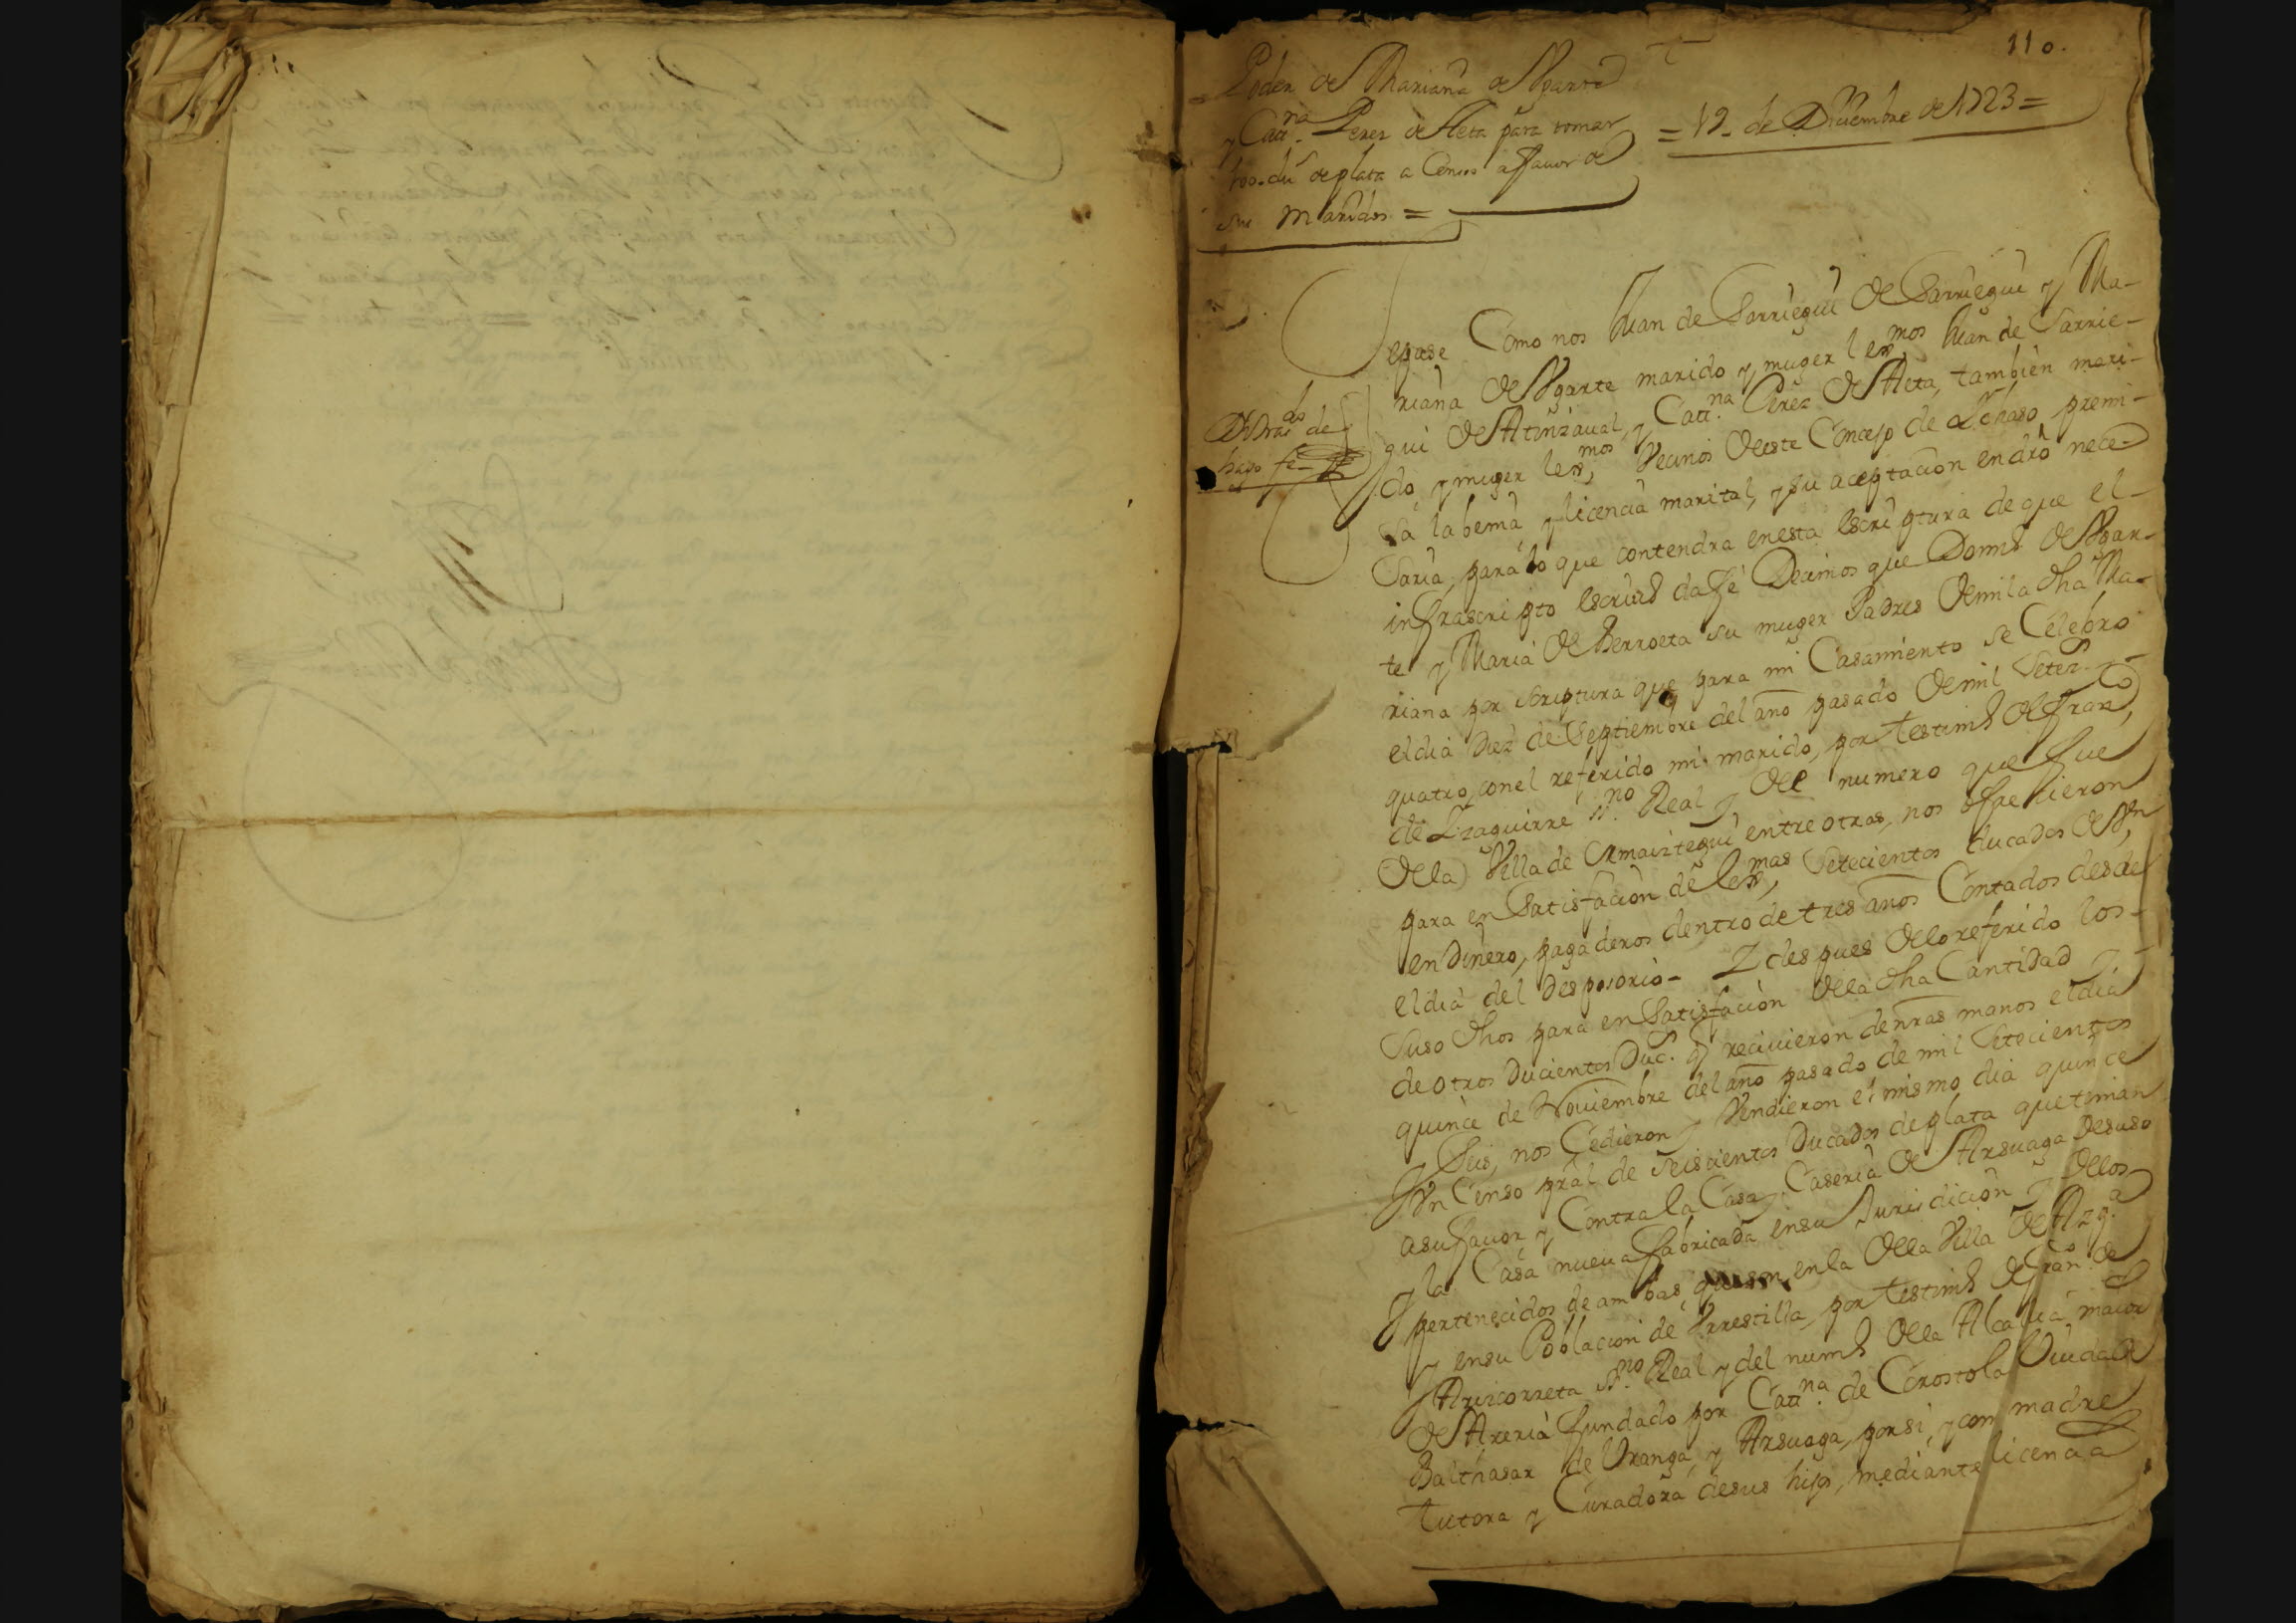 110.
Poder de Mariana de Vgarte
y Catt.na Perez de Aleta para tomar
100. du.s de plata a Censo a favor de
sus maridos =
= 19. de Diziembre de 1723 =
Sepase Como nos Juan de Sarriegui de Sarriegui y Ma-
riana de Vgarte marido y muger lex.mos Juan de Sarrie-
gui de Atinzaual, y Catt.na Perez de Aleta, tambien mari-
do y muger lex.mos, Vecinos de este Concejo de premi-
sa la benia, y licencia marital, y su aceptacion en dro nece-
saria, para lo que contendra en esta escriptura de que el
infrascripto escriu.o da fe Decimos que Dom.o de Vgar-
te y Maria de Berroeta su muger Padres de mi la dha Ma-
riana por scriptura que para mi Casamiento se Celebro
el dia diez de Septiembre del año pasado de mil setez.
quatro, con el referido mi marido, por testim.o de Fran.co
de Yzaguirre ss.no Real y del numero que fue
de la Villa de Vrmaiztegui entre otras, nos ofrecieron
para en Satisfacion de lex.mas Setecientos ducados de V.n
en dinero, pagaderos dentro de tres años Contados desde
el dia del desposorio - Y despues de lo referido los
suso dhos para en Satisfacion de la dha Cantidad y
de otros ducientos Duc.s q recivieron de nras manos el dia
quince de Noviembre del año pasado de mil Setecientos
y Seis, nos Cedieron y Vendieron el mismo dia quince
Vn Censo pral de seiscientos Ducados de plata que tenian
a su favor y Contra la Casa y Caseria de Arsuaga de suso
y la Casa nueva fabricada en su Jurisdicion y de los
pertenecidos de ambas, que son en la de la Villa de Azp.a
y en su Poblacion de Vrrestilla, por testim.o de Fran.co de
Arizcorreta ss.no Real y del num.o de la Alcaldia maior
de Areria fundado por Catt.na de Corostola Viuda de
Balthasar de Vranga, y Arsuaga, por si, y como madre
tutora y Curadora de sus hijos, mediante licencia
hago fe